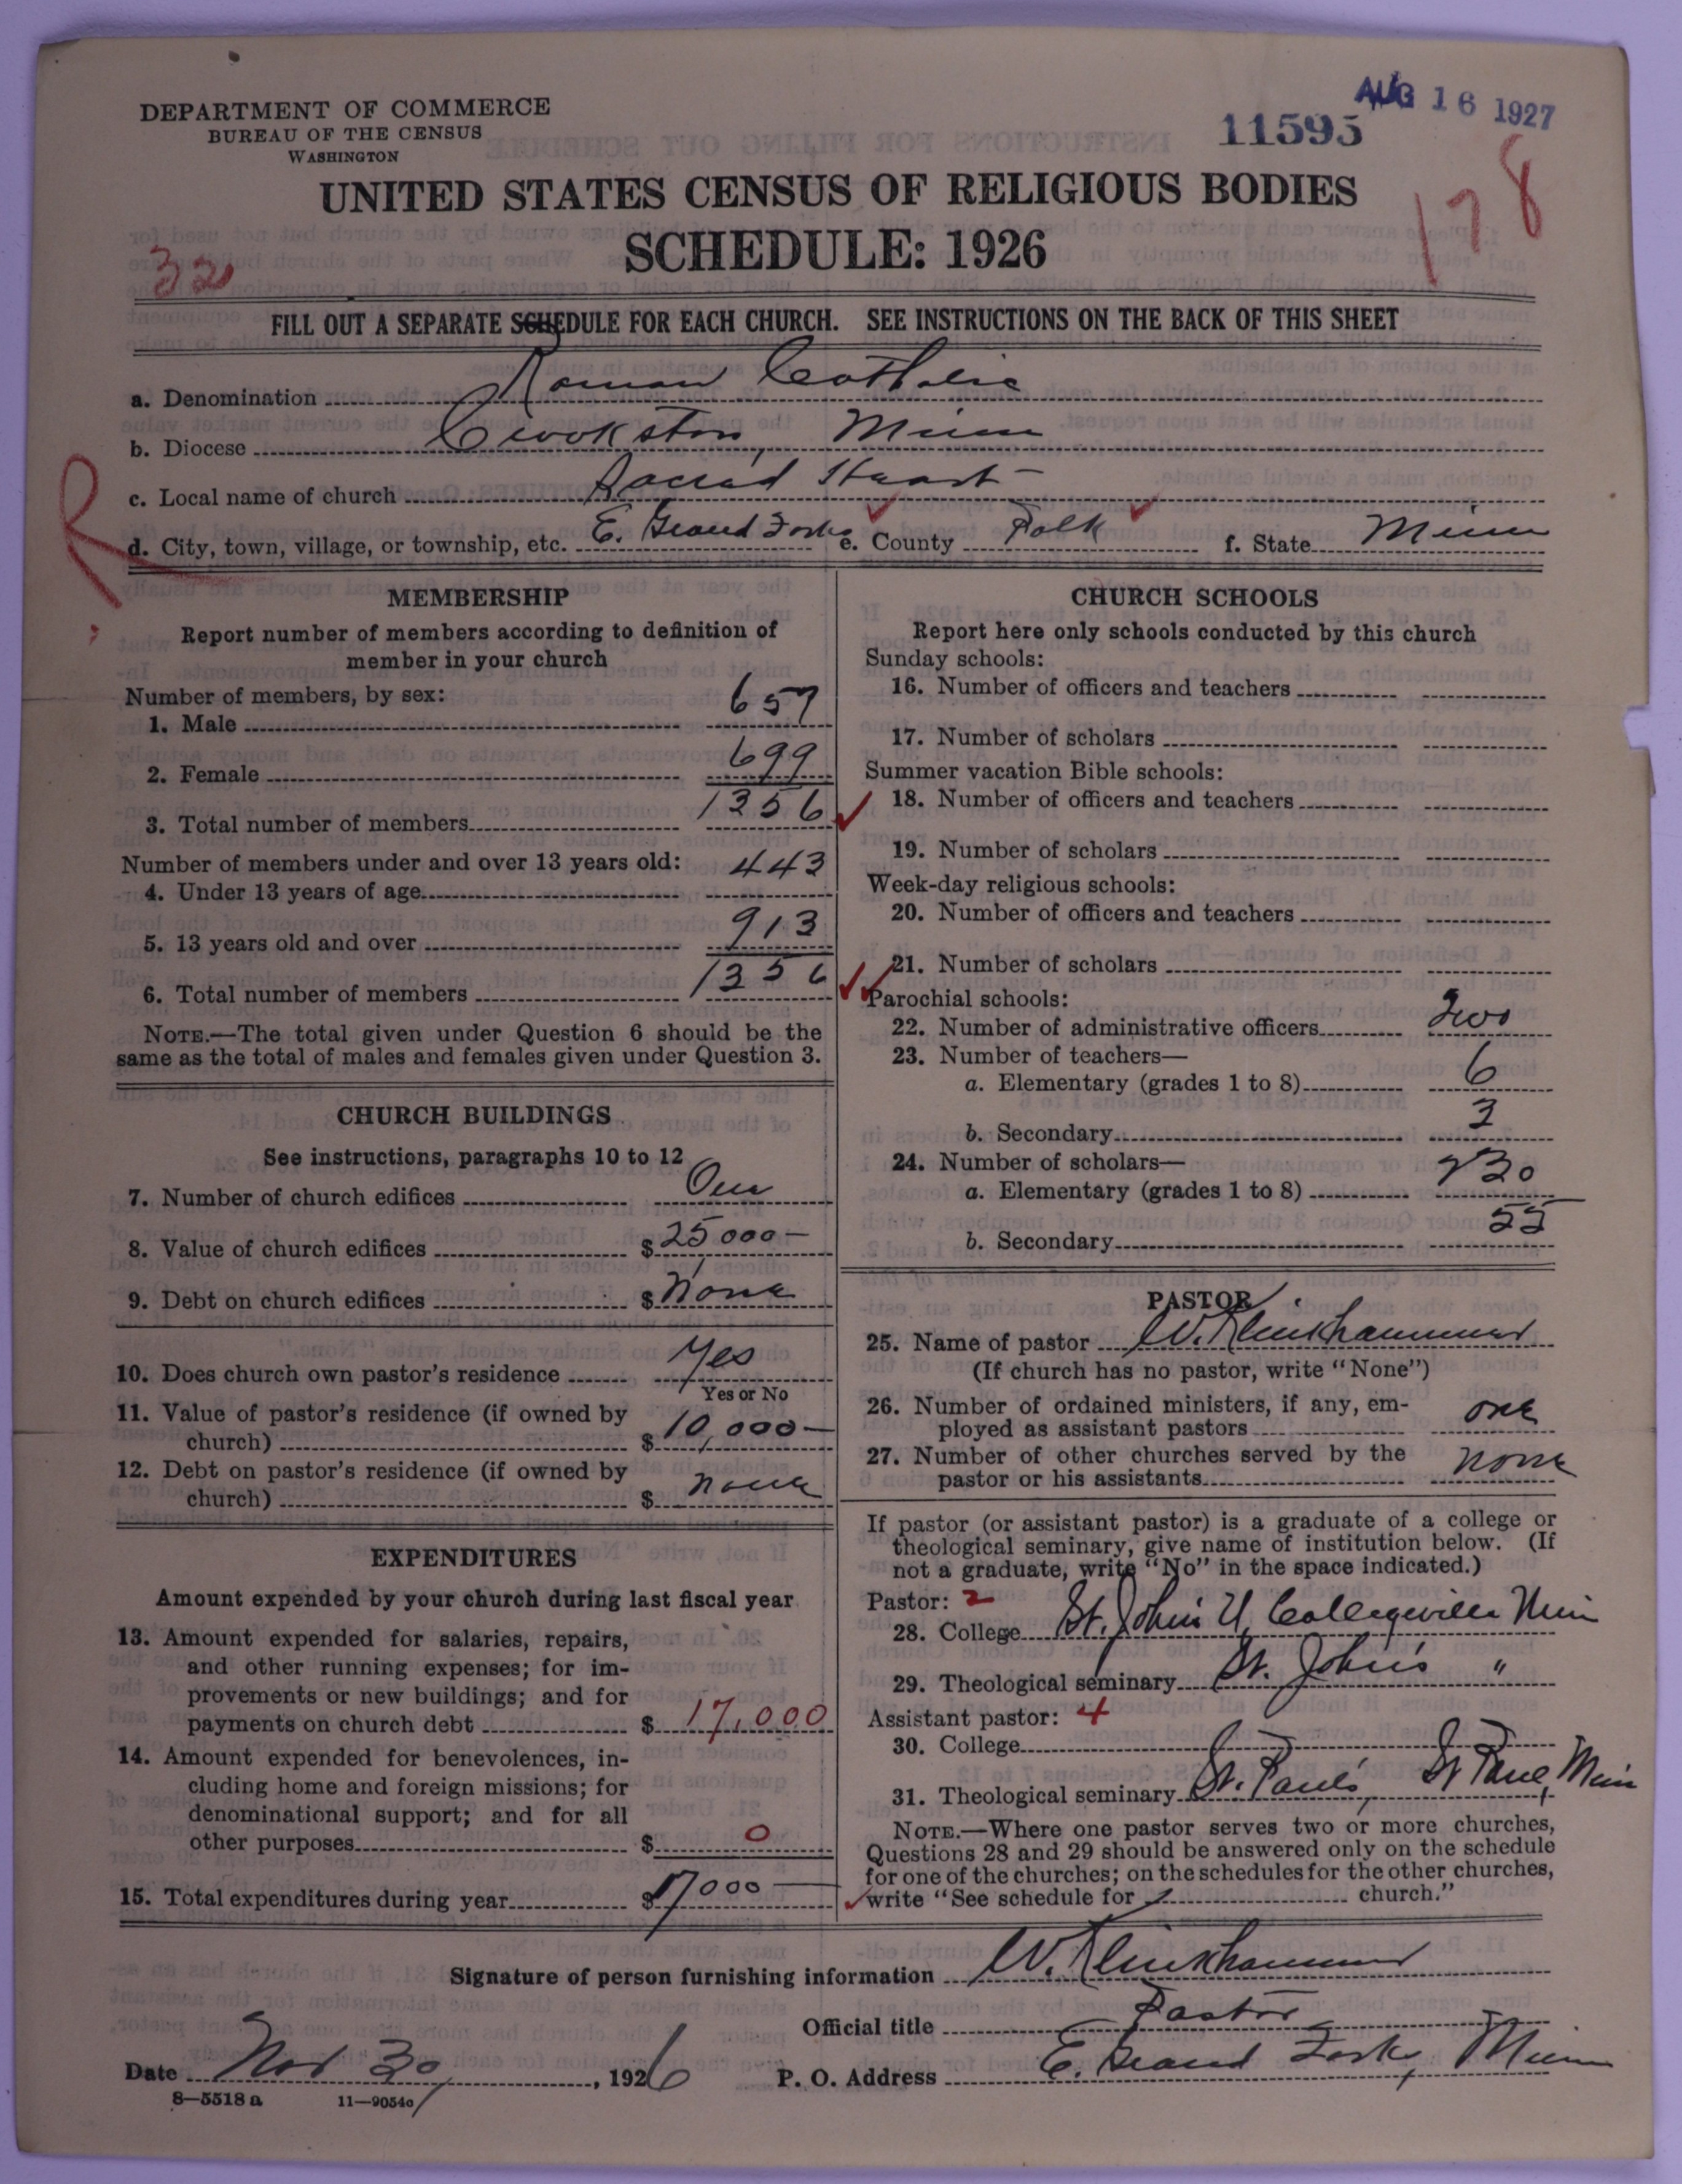 AUG 16 1927
11595
178
32
R
DEPARTMENT OF COMMERCE
BUREAU OF THE CENSUS
WASHINGTON
UNITED STATES CENSUS OF RELIGIOUS BODIES
SCHEDULE: 1926
FILL OUT A SEPARATE SCHEDULE FOR EACH CHURCH. SEE INSTRUCTIONS ON THE BACK OF THIS SHEET
a. Denomination Roman Catholic
b. Diocese Crookston, Minn
c. Local name of church Sacred Heart
d. City, town, village, or township, etc. E. Grand Forks e. County Polk f. State Minn
MEMBERSHIP
Report number of members according to definition of
member in your church
Number of members, by sex:
1. Male 657
2. Female 699
3. Total number of members 1356
Number of members under and over 13 years old:
4. Under 13 years of age 443
5. 13 years old and over 913
6. Total number of members 1356
NOTE.—The total given under Question 6 should be the
same as the total of males and females given under Question 3.
CHURCH BUILDINGS
See instructions, paragraphs 10 to 12
7. Number of church edifices One
8. Value of church edifices $25000—
9. Debt on church edifices $None
10. Does church own pastor's residence Yes
Yes or No
11. Value of pastor's residence (if owned by
church) $10,000—
12. Debt on pastor's residence (if owned by
church) $None
EXPENDITURES
Amount expended by your church during last fiscal year
13. Amount expended for salaries, repairs,
and other running expenses; for im-
provements or new buildings; and for
payments on church debt $17,000
14. Amount expended for benevolences, in-
cluding home and foreign missions; for
denominational support; and for all
other purposes $0
15. Total expenditures during year $17000—
CHURCH SCHOOLS
Report here only schools conducted by this church
Sunday schools:
16. Number of officers and teachers
17. Number of scholars
Summer vacation Bible schools:
18. Number of officers and teachers
19. Number of scholars
Week-day religious schools:
20. Number of officers and teachers
21. Number of scholars
Parochial schools:
22. Number of administrative officers Two
23. Number of teachers—
a. Elementary (grades 1 to 8) 6
b. Secondary 3
24. Number of scholars—
a. Elementary (grades 1 to 8) 230
b. Secondary 55
PASTOR
25. Name of pastor W. Klinkhammer
(If church has no pastor, write "None")
26. Number of ordained ministers, if any, em-
ployed as assistant pastors one
27. Number of other churches served by the
pastor or his assistants None
If pastor (or assistant pastor) is a graduate of a college or
theological seminary, give name of institution below. (If
not a graduate, write "No" in the space indicated.)
Pastor: 2
28. College St. John's U. Collegeville Minn
29. Theological seminary St. John's "
Assistant pastor: 4
30. College
31. Theological seminary St. Paul's, St Paul, Minn
NOTE.—Where one pastor serves two or more churches,
Questions 28 and 29 should be answered only on the schedule
for one of the churches; on the schedules for the other churches,
write "See schedule for church."
Signature of person furnishing information W. Klinkhammer
Official title Pastor
Date Nov 30, 1926 P. O. Address E. Grand Forks, Minn
8—5518 a 11—9054a